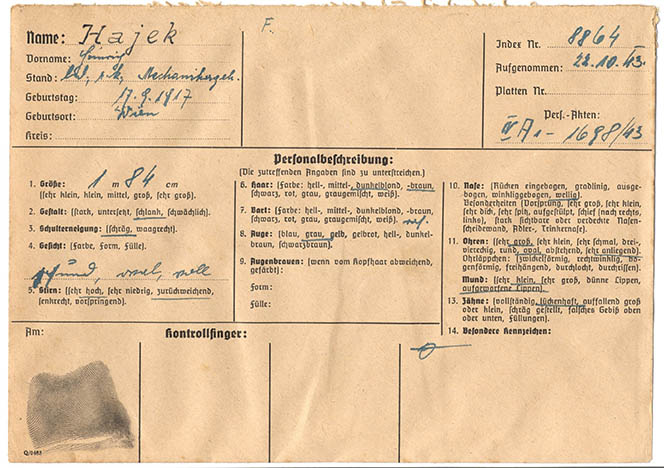 Name: Hajek
Vorname: Heinrich
Stand: led., r.k., Mechanikergeh.
Geburtstag: 17.9.1917
Geburtsort: Wien
Kreis:
F.
Index Nr. 8864
Aufgenommen: 22.10.43.
Platten Nr.
Pers.-Akten:
IV A 1 - 1698/43
Personalbeschreibung:
(Die zutreffenden Angaben sind zu unterstreichen.)
1. Größe: 1 m 84 cm
(sehr klein, klein, mittel, groß, sehr groß).
2. Gestalt: (stark, untersetzt, schlank, schwächlich).
3. Schulterneigung: (schräg, waagrecht).
4. Gesicht: (Farbe, Form, Fülle).
gesund, oval, voll
5. Stirn: (sehr hoch, sehr niedrig, zurückweichend,
senkrecht, vorspringend).
6. Haar: (Farbe: hell-, mittel-, dunkelblond, -braun,
schwarz, rot, grau, graugemischt, weiß).
7. Bart: (Farbe: hell-, mittel-, dunkelblond, -braun,
schwarz, rot, grau, graugemischt, weiß).
8. Auge: (blau, grau, gelb, gelbrot, hell-, dunkel-
braun, schwarzbraun).
9. Augenbrauen: (wenn vom Kopfhaar abweichend,
gefärbt):
Form:
Fülle:
10. Nase: (Rücken eingebogen, gradlinig, ausge-
bogen, winkliggebogen, wellig).
Besonderheiten (Vorsprung, sehr groß, sehr klein,
sehr dick, sehr spitz, aufgestülpt, schief (nach rechts,
links), stark sichtbare oder verdeckte Nasen-
scheidewand, Adler-, Trinkernase).
11. Ohren: (sehr groß, sehr klein, sehr schmal, drei-
viereckig, rund, oval, abstehend, sehr anliegend).
Ohrläppchen: (zwickelförmig, rechtwinklig, bo-
genförmig, freihängend, durchlocht, durchrissen).
Mund: (sehr klein, sehr groß, dünne Lippen,
aufgeworfene Lippen).
13. Zähne: (vollständig, lückenhaft, auffallend groß
oder klein, schräg gestellt, falsches Gebiß oben
oder unten, Füllungen).
14. Besondere Kennzeichen:
Am:
Kontrollfinger: